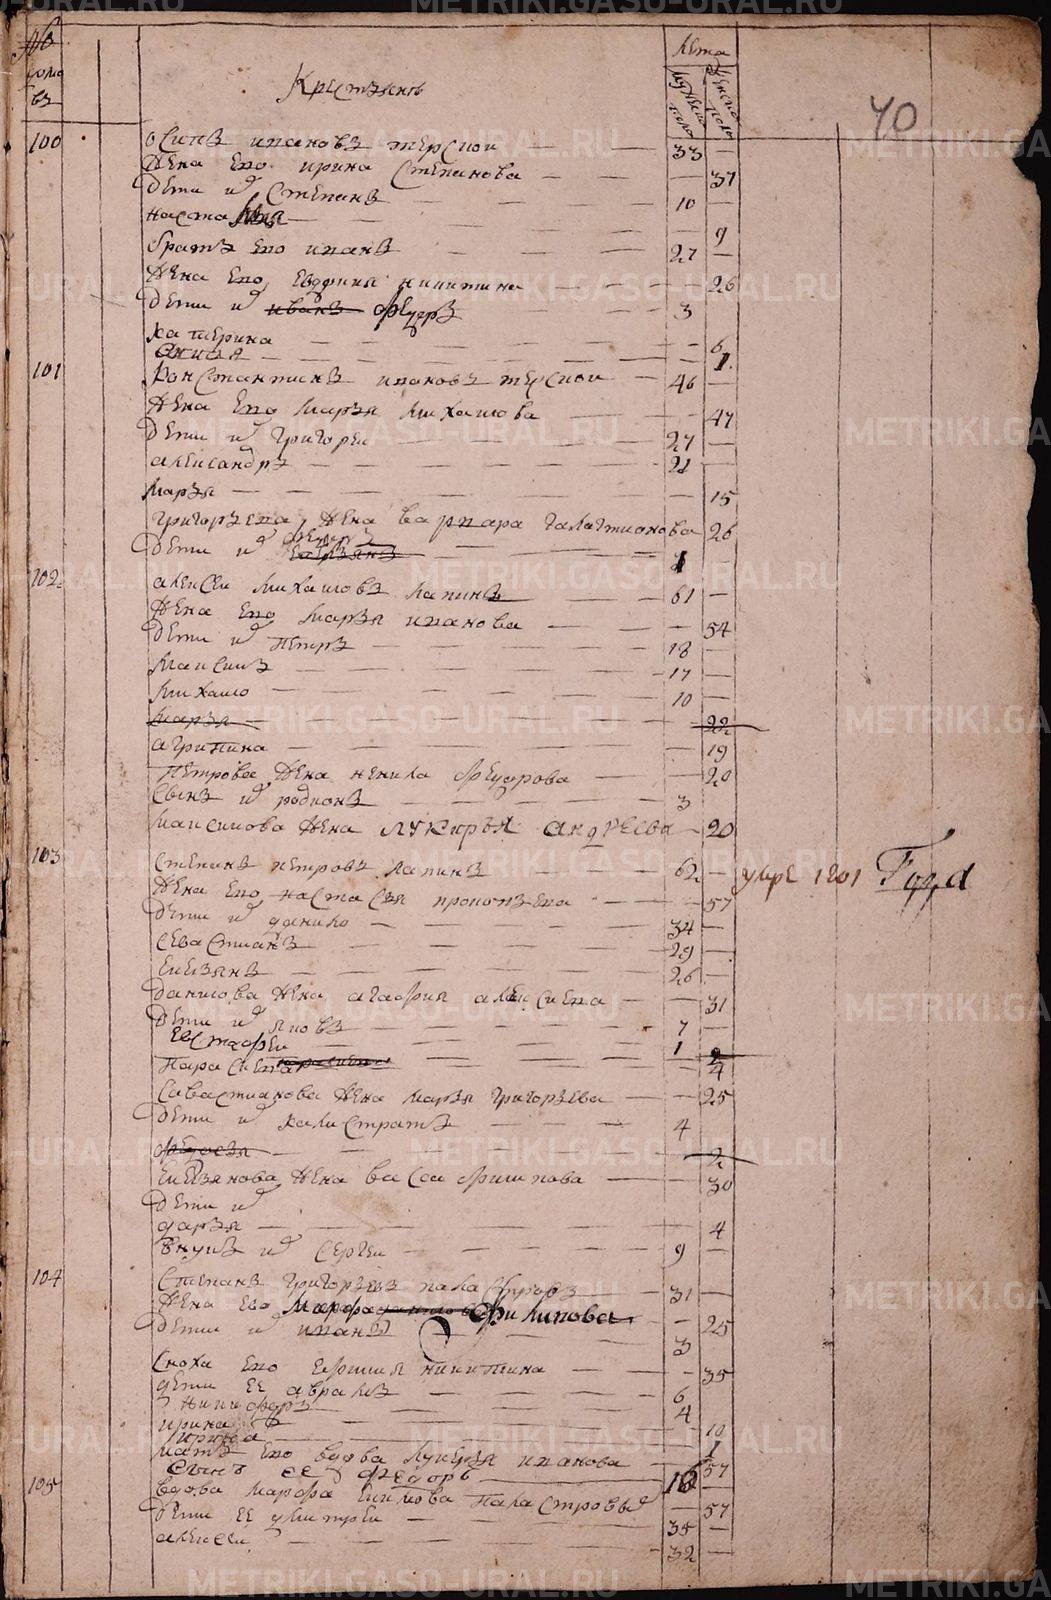 №
домовъ
Крестьянъ
Лета
мужеска пола
женска пола
40
100 осипъ ивановъ терскои 33 —
жена ево ирина степанова — 37
дети их степанъ 10 —
настасья — 9
братъ ево иванъ 27 —
жена ево евдокия никитина — 26
дети их иванъ федоръ 3
катерина — 6
анисья — 1
101 констянтинъ ивановъ терскои 46 —
жена ево марья михаилова — 47
дети их григореи 27 —
александръ 21 —
марья — 15
григорьева жена варвара галактионова 26
дети их федоръ 1
102 алексеи михаиловъ лапинъ 61 —
жена ево марья иванова — 54
дети их петръ 18 —
максимъ 17 —
михаило 10 —
марья — 22
агрипина — 19
петрова жена ненила федорова — 20
сынъ их родионъ 3 —
максимова жена лукирья андреева — 20
103 степанъ петровъ лапинъ 62 — умре 1801 года
жена ево настасья прокопьева — 57
дети их данило 34 —
севастианъ 29 —
елизянъ 26 —
данилова жена агафия алексеева — 31
дети их яковъ 7 —
евстафеи 1 2
парасковья — 4
савастианова жена марья григорьева — 25
дети их калистратъ 4
федосья — 2
жена васса филипова — 30
дети их
дарья — 4
внукъ их сергеи 9 —
104 степанъ григорьевъ 31 —
жена ево марфа филипова — 25
дети их иванъ 3
сноха ево никитина — 35
дети ее аврамъ 6
никифоръ 4
ирина — 10
ирина — 1
мать ево вдова лукерья иванова — 57
сынъ ее федоръ 18
105 вдова марфа — 57
дети ее дмитреи 35 —
алексеи 32 —
METRIKI.GASO-URAL.RU